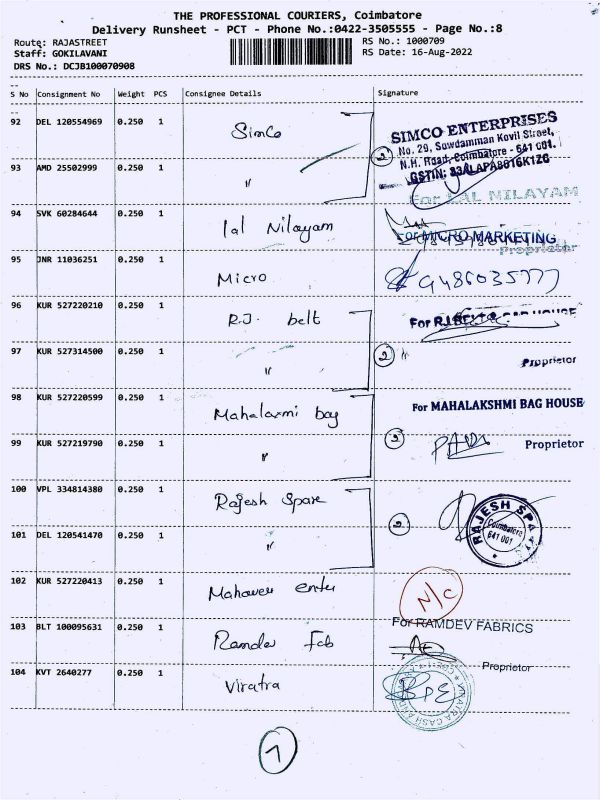 THE PROFESSIONAL COURIERS, Coimbatore
Delivery Runsheet - PCT - Phone No.:0422-3505555 - Page No.:8
Route: RAJASTREET
RS No.: 1000709
Staff: GOKILAVANI
RS Date: 16-Aug-2022
DRS No.: DCJB100070908
S No Consignment No Weight PCS Consignee Details Signature
92 DEL 120554969 0.250 1 Simco
SIMCO ENTERPRISES
No. 29, Sowdamman Kovil Street,
N.H. Road, Coimbatore - 641 001.
GSTIN: 33ALAPA8016K1ZG
93 AMD 25502999 0.250 1 " 2
For LAL NILAYAM
94 SVK 60284644 0.250 1 lal Nilayam
For MICRO MARKETING
Proprietor
95 JNR 11036251 0.250 1 Micro 9486035777
96 KUR 527220210 0.250 1 R.J. belt
For R.J BELT & BAG HOUSE
97 KUR 527314500 0.250 1 " 2
Proprietor
98 KUR 527220599 0.250 1 Mahalaxmi bag
For MAHALAKSHMI BAG HOUSE
99 KUR 527219790 0.250 1 " 2
Proprietor
100 VPL 334814380 0.250 1 Rajesh Spare
RAJESH SPA
Coimbatore
641 001
101 DEL 120541470 0.250 1 " 2
102 KUR 527220413 0.250 1 Mahaveer enter N/C
103 BLT 100095631 0.250 1 Ramdev Fab
For RAMDEV FABRICS
Proprietor
104 KVT 2640277 0.250 1 Viratra
7